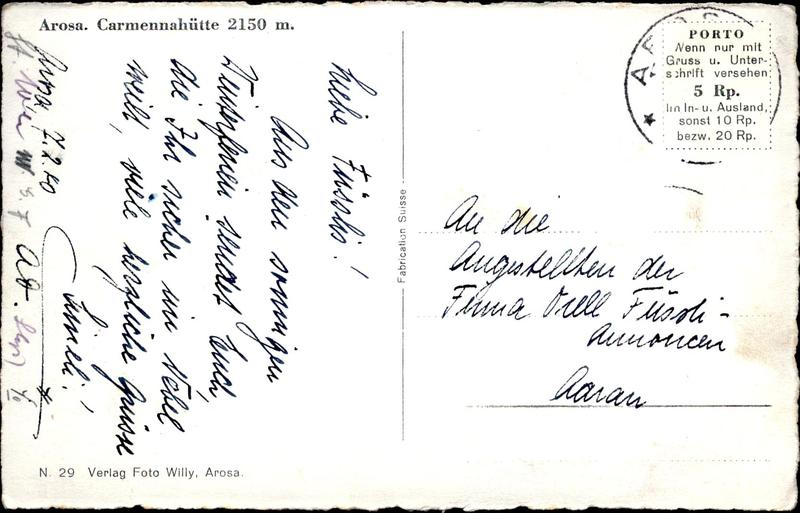 Arosa. Carmennahütte 2150 m.
Arosa, 7.2.50
Liebe Füsslis!
Aus den sonnigen
Winterferien sendet Euch,
die Ihr sicher im Nebel
seid, viele herzliche Grüsse
Fabrication Suisse
N. 29 Verlag Foto Willy, Arosa.
AROSA
PORTO
Wenn nur mit
Gruss u. Unter-
schrift versehen
5 Rp.
im In- u. Ausland,
sonst 10 Rp.
bezw. 20 Rp.
An die
Angestellten der
Firma Orell Füssli-
Annoncen
Aarau